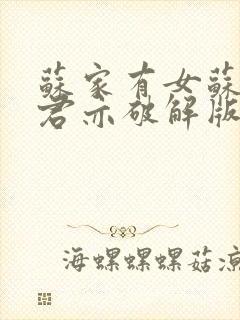 蘇家有女蘇
君亦破解版
海螺螺螺菇涼